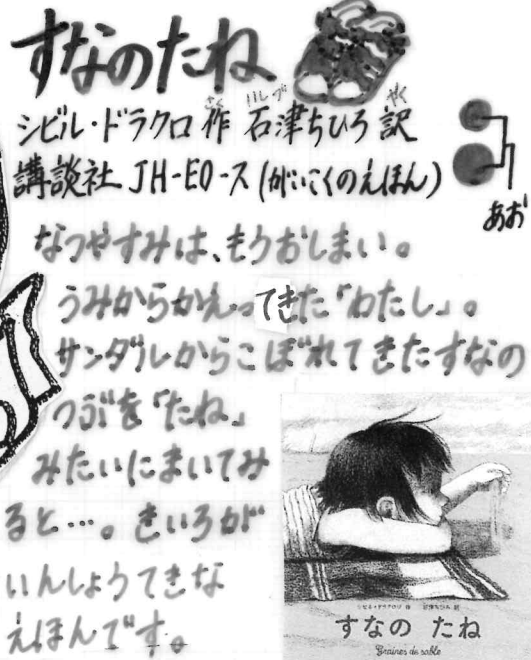 すなのたね
シビル・ドラクロ 作 石津ちひろ 訳
さく いしづ やく
講談社 JH-E0-ス (がいこくのえほん)
あお
なつやすみは、もうおしまい。
うみからかえってきた「わたし」。
サンダルからこぼれてきたすなの
つぶを「たね」
みたいにまいてみ
ると…。きいろが
いんしょうてきな
えほんです。
シビル・ドラクロワ 作 石津ちひろ 訳
すなの たね
Graines de sable